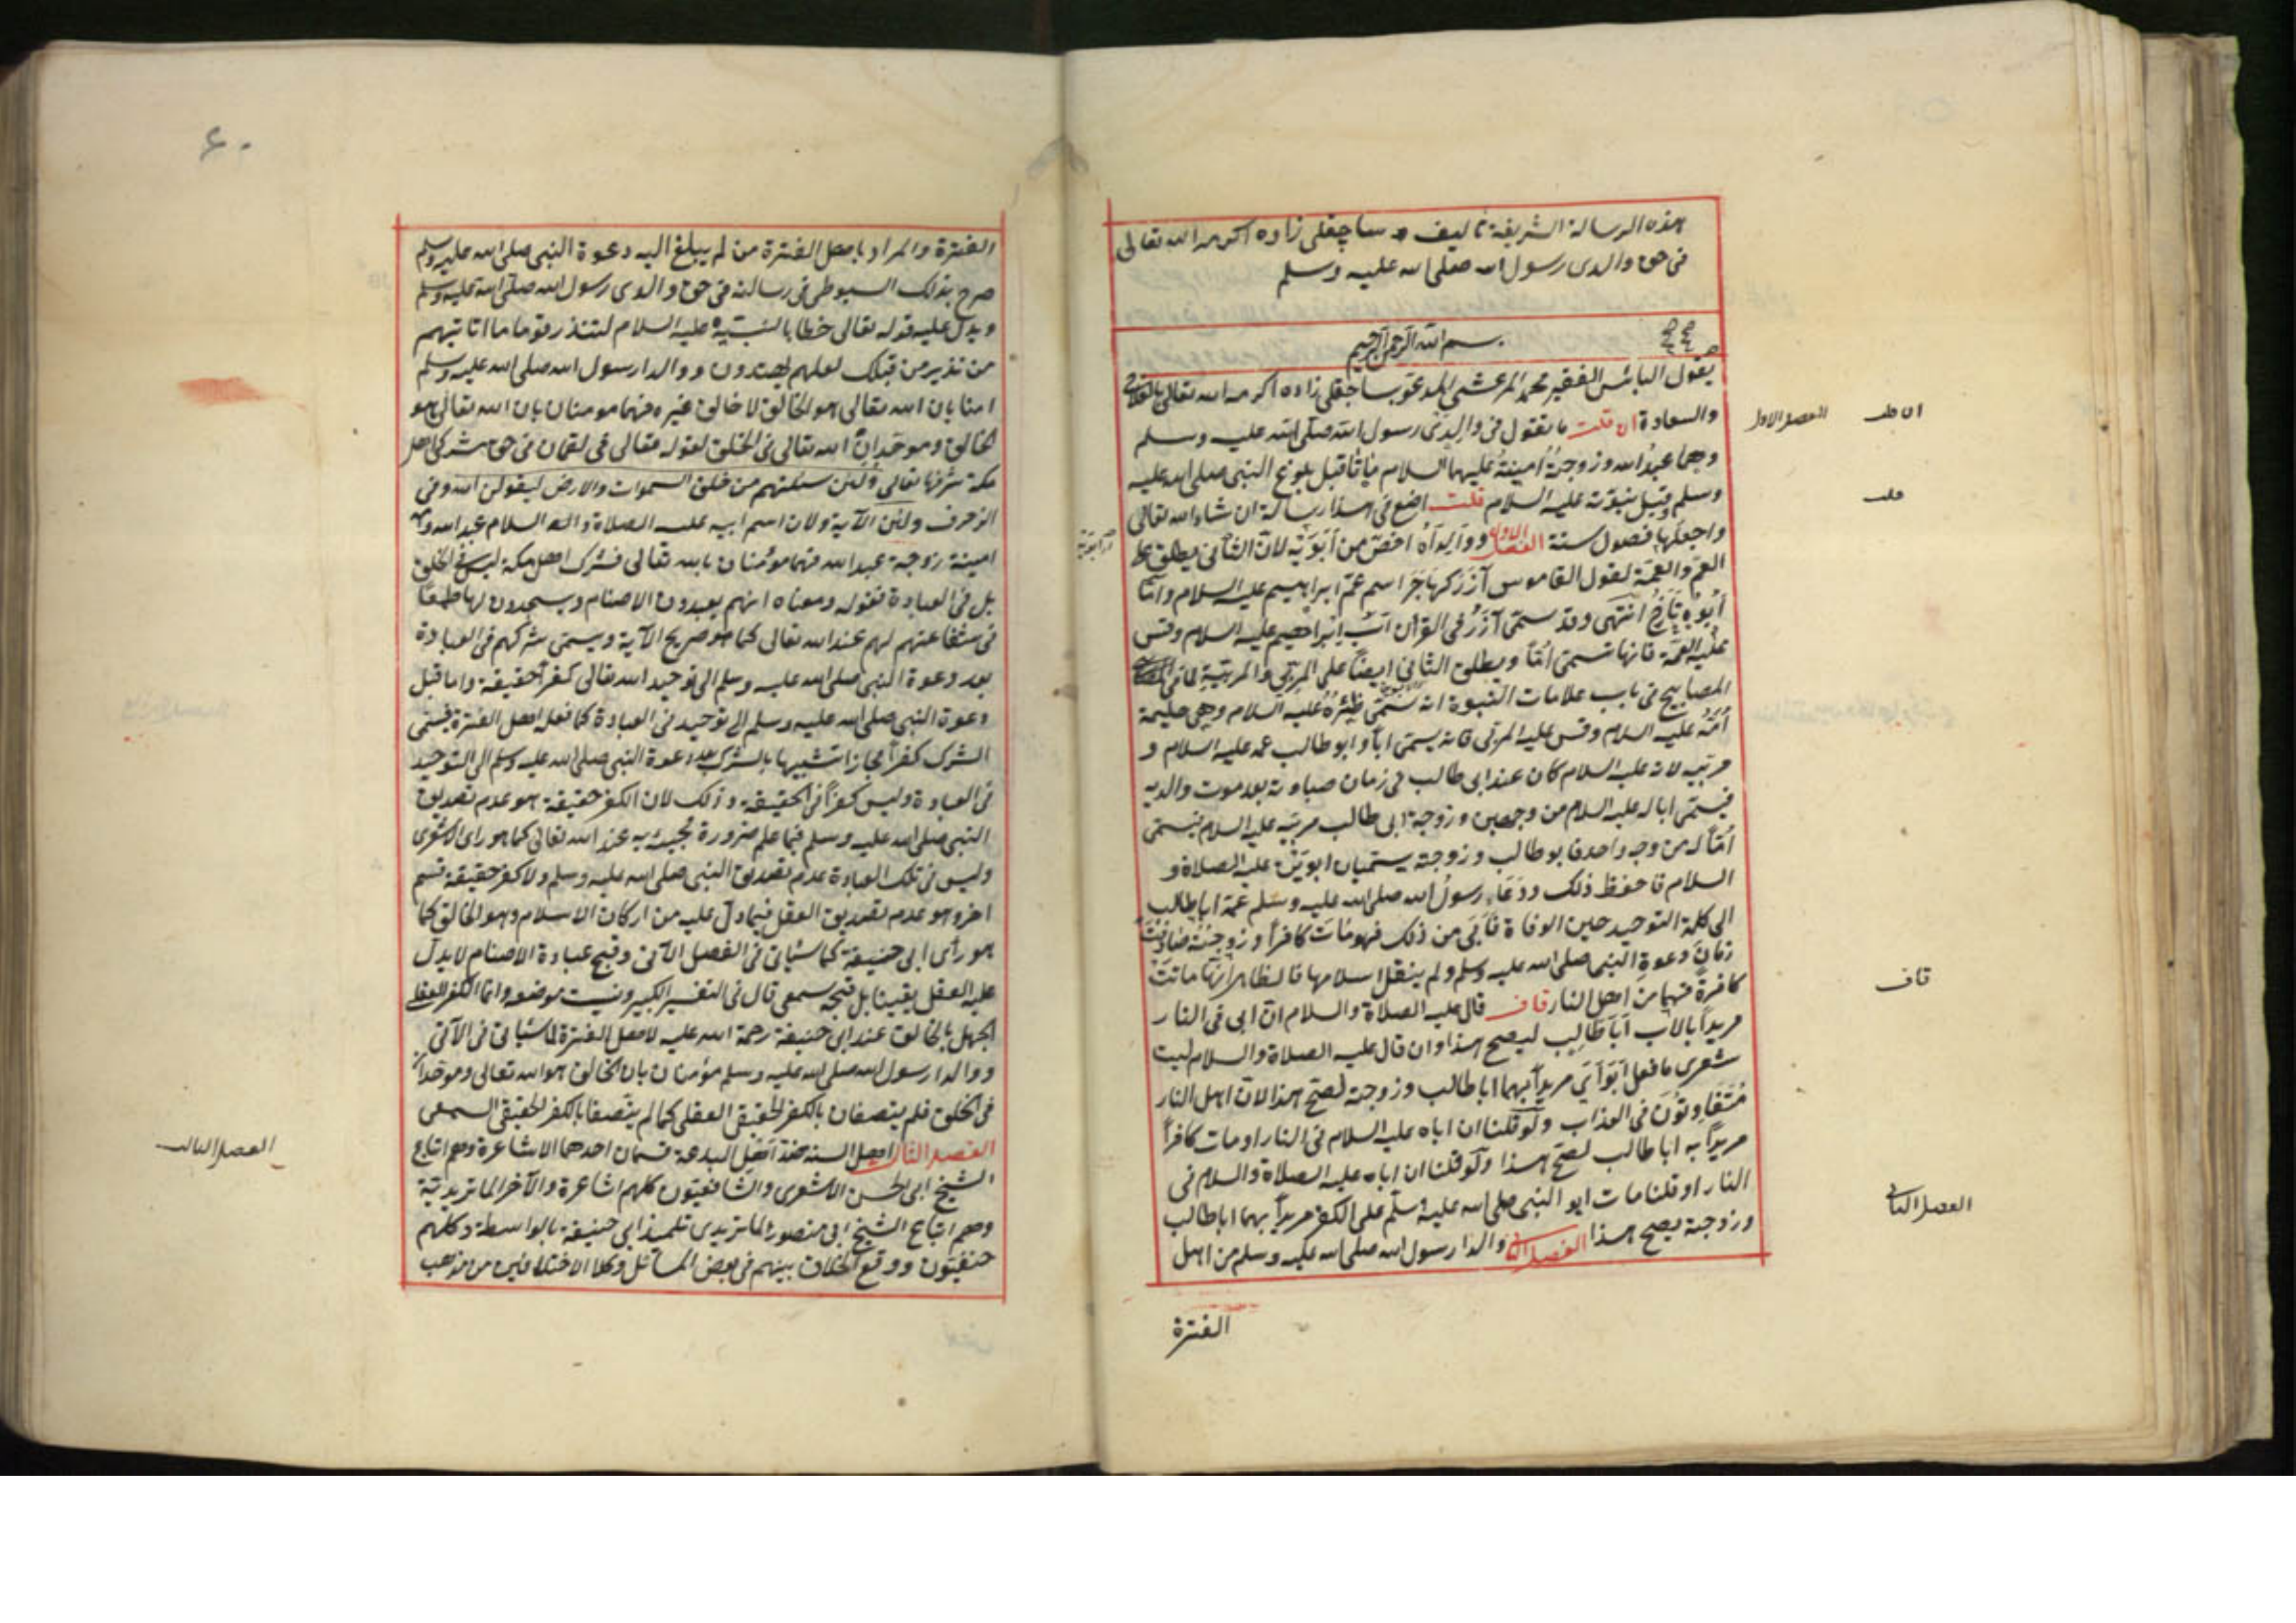 هذه الرسالة الشريفة تأليف ساچقلى زاده اكرمه الله تعالى
فى حق والدى رسول الله صلى الله عليه وسلم
بسم الله الرحمن الرحيم
يقول البائس الفقير محمد المرعشى المدعو بساجقلى زاده اكرمه الله تعالى
والسعادة ان قلت ما تقول فى والدى رسول الله صلى الله عليه وسلم
وهما عبد الله وزوجته امينة عليهما السلام ماتا قبل بلوغ النبى صلى الله عليه
وسلم وقبل نبوته عليه السلام قلت اضع فى هذا رسالة ان شاء الله تعالى
واجعلها فصول ستة الفصل الاول ووالداه اخص من ابويه لان الثانى يطلق على
العم والعمة لقول القاموس آزر كهاجر اسم عم ابراهيم عليه السلام واما
ابوه تارخ انتهى وقد سمى آزر فى القرآن اب ابراهيم عليه السلام وقس
عليه العمة فانها تسمى اما ويطلق الثانى ايضا على المربى والمربية لما فى
المصابيح فى باب علامات النبوة انه سمى ظئره عليه السلام وهى حليمة
امه عليه السلام وقس عليه المربى فانه يسمى ابا وابو طالب عمه عليه السلام و
مربيه لانه عليه السلام كان عند ابى طالب فى زمان صباوته بعد موت والديه
فيسمى ابا له عليه السلام من وجهين وزوجة ابى طالب مربيه عليه السلام فيسمى
اما له من وجه واحد فابو طالب وزوجته يسميان ابويه عليه الصلاة و
السلام فاحفظ ذلك ودعاء رسول الله صلى الله عليه وسلم عمه ابا طالب
الى كلمة التوحيد حين الوفاة فابى من ذلك فهو مات كافرا وزوجته
زمان دعوة النبى صلى الله عليه وسلم ولم ينقل اسلامها فالظاهر انها ماتت
كافرة فهما من اهل النار قاف قال عليه الصلاة والسلام ان ابى فى النار
مريدا بالاب ابا طالب ليصح هذا وان قال عليه الصلاة والسلام ليت
شعرى ما فعل ابواى مريدا بهما ابا طالب وزوجته لصح هذا لان اهل النار
متفاوتون فى العذاب ولو قلنا ان اباه عليه السلام فى النار او مات كافرا
مريدا به ابا طالب لصح هذا ولو قلنا ان اباه عليه الصلاة والسلام فى
النار او قلنا مات ابو النبى صلى الله عليه وسلم على الكفر مريدا بهما ابا طالب
وزوجته يصح هذا الفصل الثانى والدا رسول الله صلى الله عليه وسلم من اهل
الفترة
ان قلت
الفصل الاول
قلت
قاف
الفصل الثانى
٦٠
الفترة والمراد باهل الفترة من لم يبلغ اليه دعوة النبى صلى الله عليه وسلم
صرح بذلك السيوطى فى رسالته فى حق والدى رسول الله صلى الله عليه وسلم
ويدل عليه قوله تعالى خطابا لنبيه عليه السلام لتنذر قوما ما اتاتيهم
من نذير من قبلك لعلهم يهتدون ووالدا رسول الله صلى الله عليه وسلم
امنا بان الله تعالى هو الخالق لا خالق غيره فهما مومنان بان الله تعالى هو
الخالق وموحدان الله تعالى فى الخلق لقوله تعالى فى لقمان فى حق مشركى اهل
مكة شرفها تعالى ولئن سئلتهم من خلق السموات والارض ليقولن الله وفى
الزخرف ولئن الآية ولان اسم ابيه عليه الصلاة والسلام عبد الله
امينة زوجة عبد الله فهما مؤمنان بالله تعالى فشرك اهل مكة ليس فى الخلق
بل فى العبادة فقوله ومعناه انهم يعبدون الاصنام ويسجدون لها طمعا
فى شفاعتهم لهم عند الله تعالى كما هو صريح الآية ويسمى شركهم فى العبادة
بعد دعوة النبى صلى الله عليه وسلم الى توحيد الله تعالى كفرا حقيقة واما قبل
دعوة النبى صلى الله عليه وسلم الى توحيد فى العبادة كما فعل اهل الفترة فيسمى
الشرك كفرا مجازا تشبيها بالشرك بعد دعوة النبى صلى الله عليه وسلم الى التوحيد
فى العبادة وليس كفرا فى الحقيقة وذلك لان الكفر حقيقة هو عدم تصديق
النبى صلى الله عليه وسلم فيما علم ضرورة مجيئه به عند الله تعالى كما هو راى الاشعرى
وليس فى تلك العبادة عدم تصديق النبى صلى الله عليه وسلم ولا كفر حقيقة قسم
اخر وهو عدم تصديق العقل فيما دل عليه من اركان الاسلام وهو الخالق كما
هو رأى ابى حنيفة كما سيأتى فى الفصل الآتى وقبح عبادة الاصنام لا يدل
عليه العقل يقينا بل قبحه سمعى قال فى التفسير الكبير وبينت موضعه وانما الكفر العقلى
الجهل بالخالق عند ابى حنيفة رحمة الله عليه لاهل الفترة لما سيأتى فى الآتى
ووالدا رسول الله صلى الله عليه وسلم مؤمنان بان الخالق هو الله تعالى وموحدان
فى الخلق فلم يتصفان بالكفر الحقيقى العقلى كما لم يتصفا بالكفر الحقيقى السمعى
الفصل الثالث اهل السنة ضد اهل البدعة قسمان احدهما الاشاعرة وهم اتباع
الشيخ ابى الحسن الاشعرى والشافعيون كلهم اشاعرة والآخر الماتريدية
وهم اتباع الشيخ ابى منصور الماتريدى تلميذ ابى حنيفة بالواسطة وكلهم
حنفيون ووقع الخلاف بينهم فى بعض المسائل وكلا الاختلافين من مذهب
الفصل الثالث